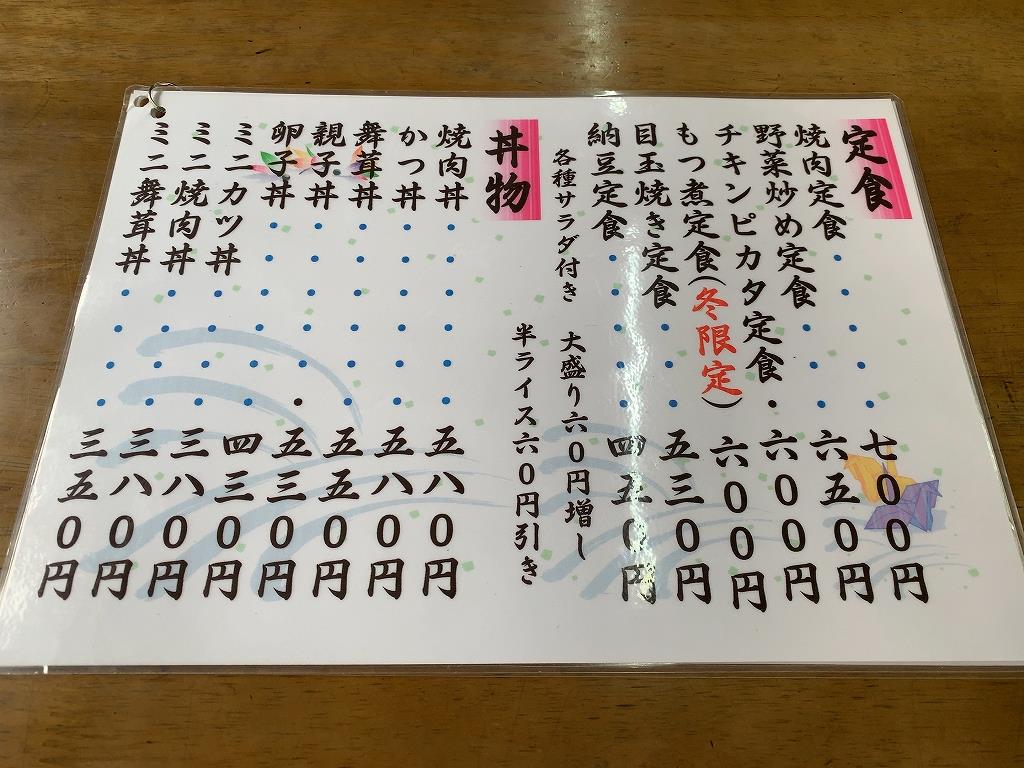 定食
焼肉定食・・・・七00円
野菜炒め定食・・・六五0円
チキンピカタ定食・六00円
もつ煮定食(冬限定)六00円
目玉焼き定食・・・五三0円
納豆定食・・・・・四五0円
各種サラダ付き 大盛り六0円増し
半ライス六0円引き
丼物
焼肉丼・・・・・・五八0円
かつ丼・・・・・・五八0円
舞茸丼・・・・・・五五0円
親子丼・・・・・・五三0円
卵子丼・・・・・・四三0円
ミニカツ丼・・・・三八0円
ミニ焼肉丼・・・・三八0円
ミニ舞茸丼・・・・三五0円